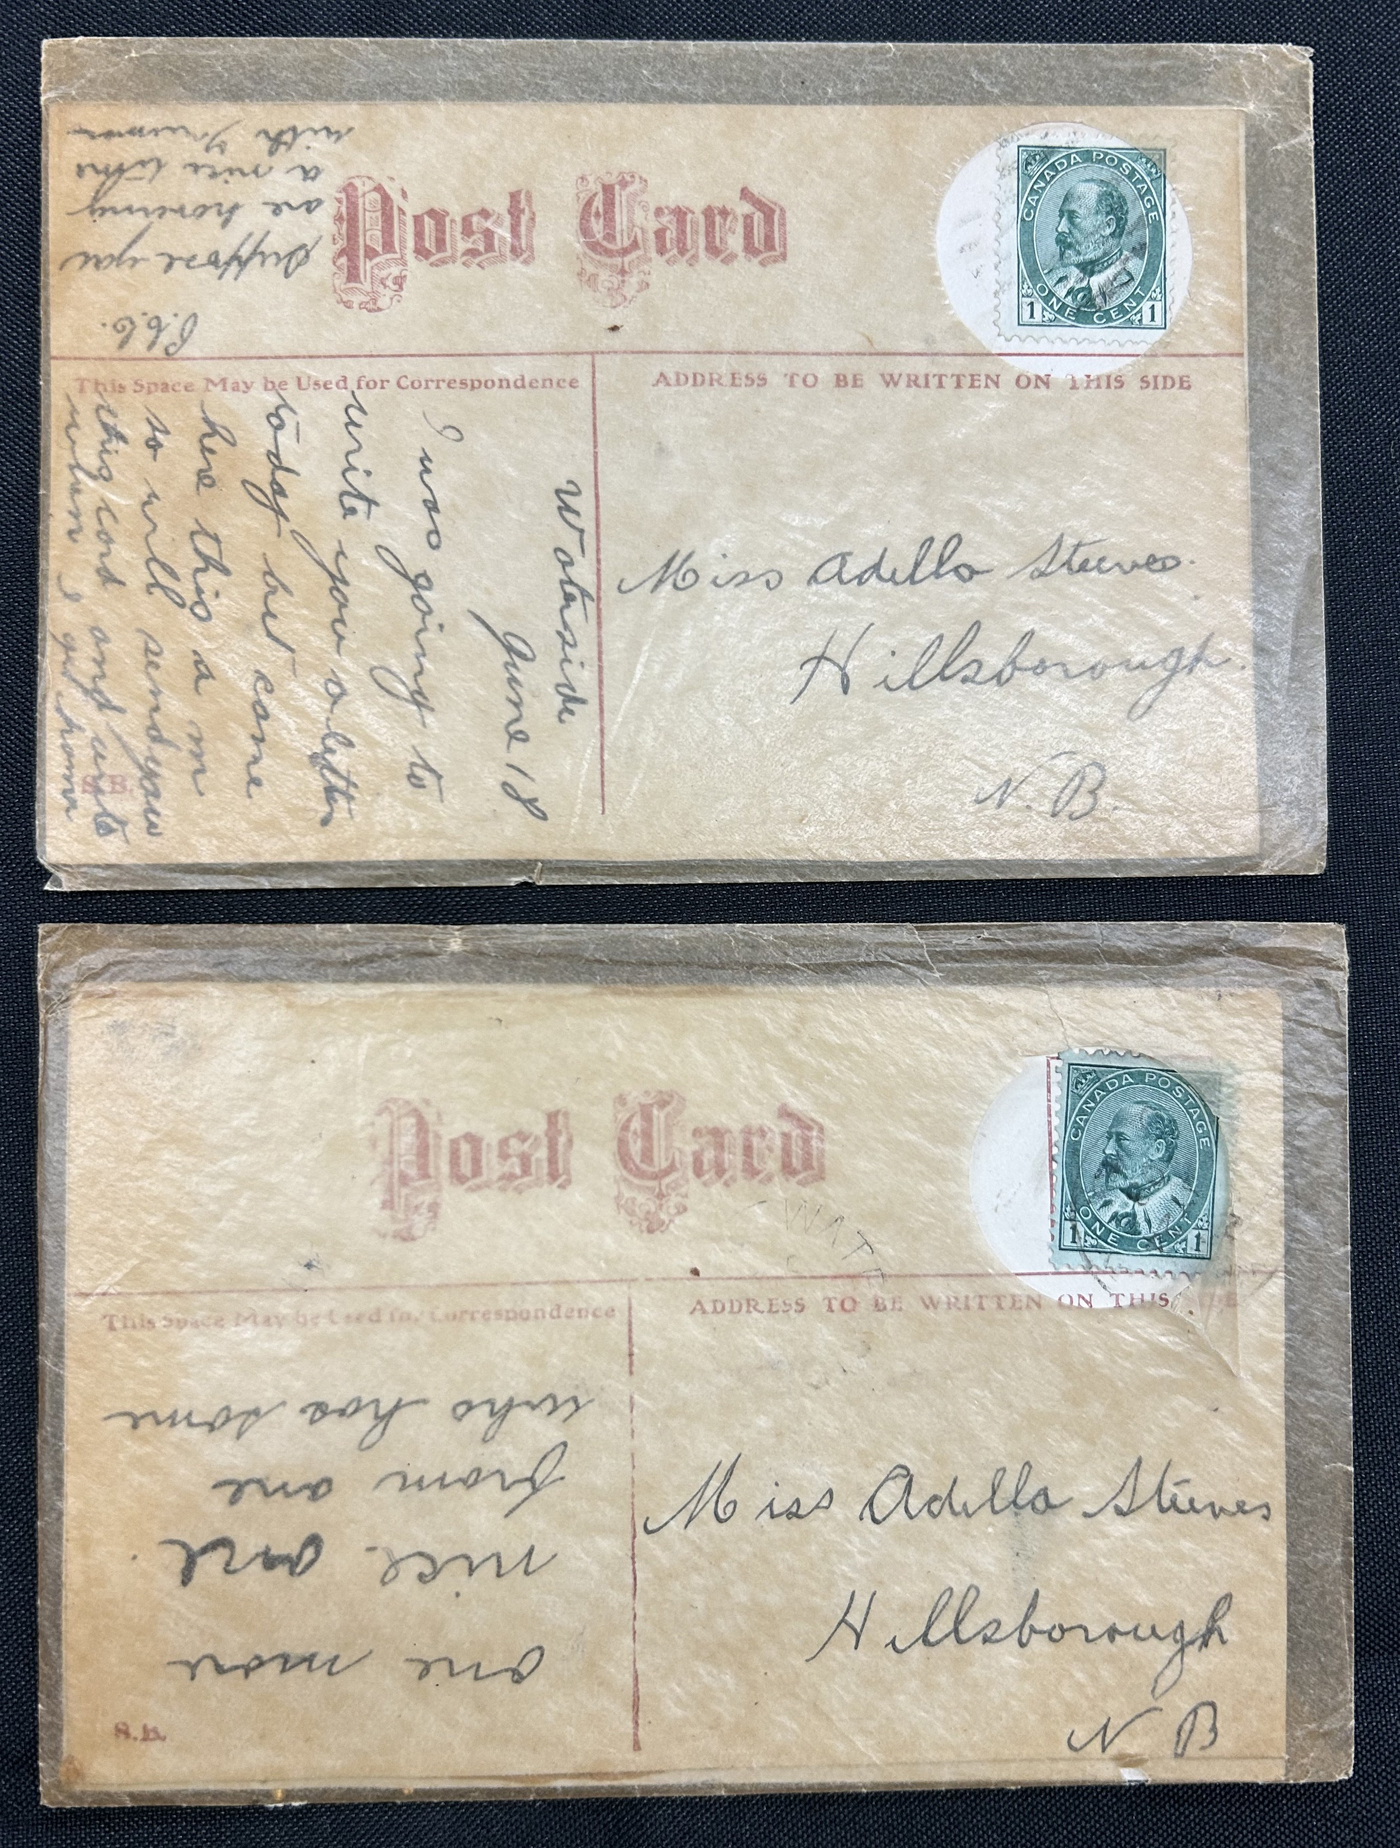 Post Card
CANADA POSTAGE
ONE CENT
1 1
This Space May be Used for Correspondence
ADDRESS TO BE WRITTEN ON THIS SIDE
Waterside
June 18
I was going to
write you a letter
today but came
here this a m
so will send you
this card and write
when I get home
Suppose you
are having
a nice time
with
Miss Adella Steeves.
Hillsborough.
N. B.
S.B.
Post Card
CANADA POSTAGE
ONE CENT
1 1
WATE
This Space May be Used for Correspondence
ADDRESS TO BE WRITTEN ON THIS
one more
nice and
from one
who has some
Miss Adella Steeves
Hillsborough
N B
S.B.